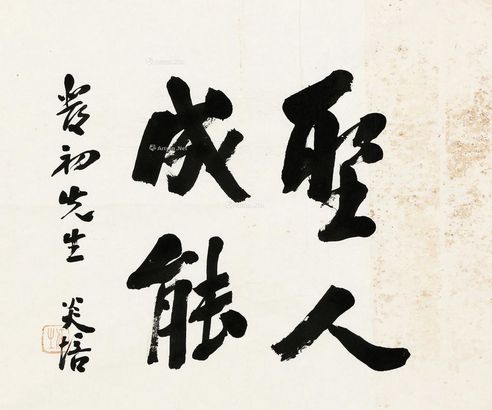 聖人
成能
初先生 炎培
Artron.Net